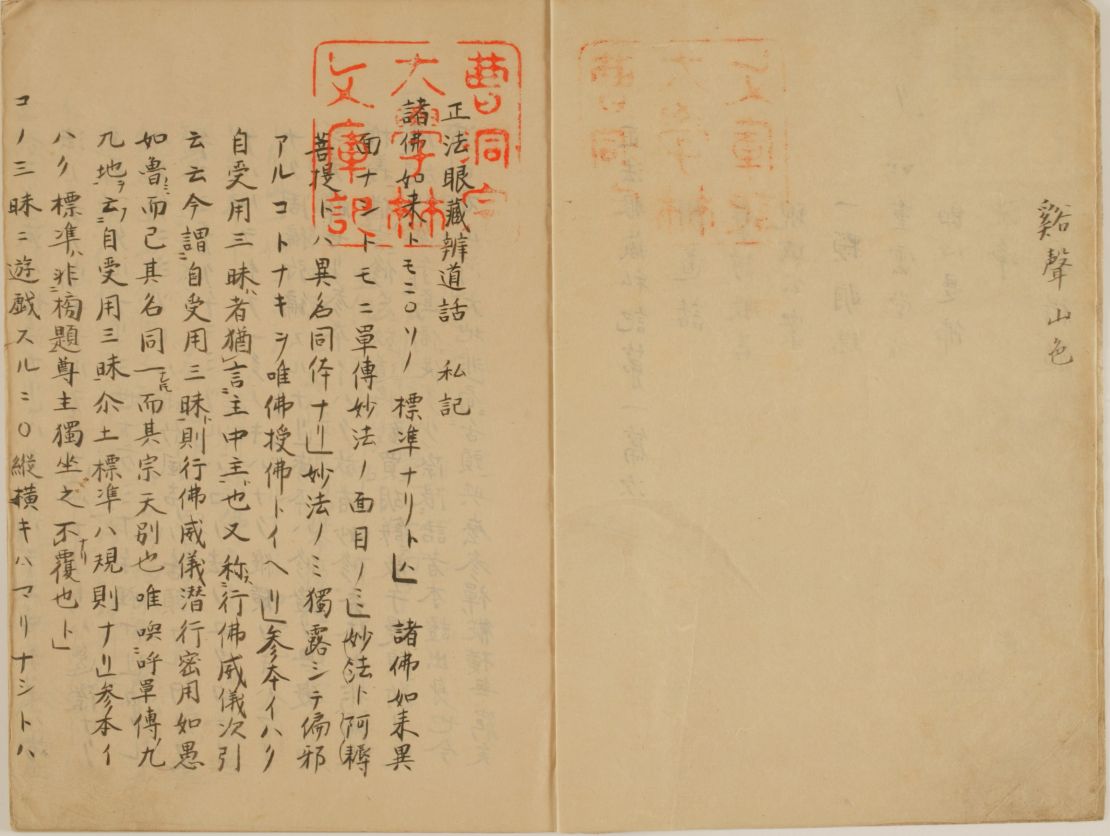 谿聲山色
曹洞宗
大學林
文庫記
正法眼藏辨道話 私記
諸佛如来トモニ〇ソノ標準ナリトハ 諸佛如来異
面ナシトモニ單傳妙法ノ面目ノミ妙法ト阿耨
菩提トハ異名同体ナリ妙法ノミ獨露シテ偏邪
アルコトナキヲ唯佛授佛トイヘリ参本イハク
自受用三昧者猶言主中主也又称行佛威儀次引
云云今謂自受用三昧則行佛威儀潜行密用如愚
如魯而已其名同一而其宗天別也唯喚呼單傳
九地云自受用三昧尒土標準ハ規則ナリ参本イ
ハク標準非榜題尊主獨坐之不覆也ト
コノ三昧ニ遊戯スルニ〇縦横キハマリナシトハ